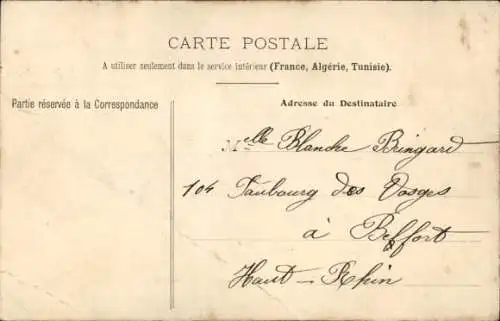 CARTE POSTALE
A utiliser seulement dans le service intérieur (France, Algérie, Tunisie).
Partie réservée à la Correspondance
Adresse du Destinataire
Melle Blanche Bringard
104 Faubourg des Vosges
à Belfort
Haut-Rhin